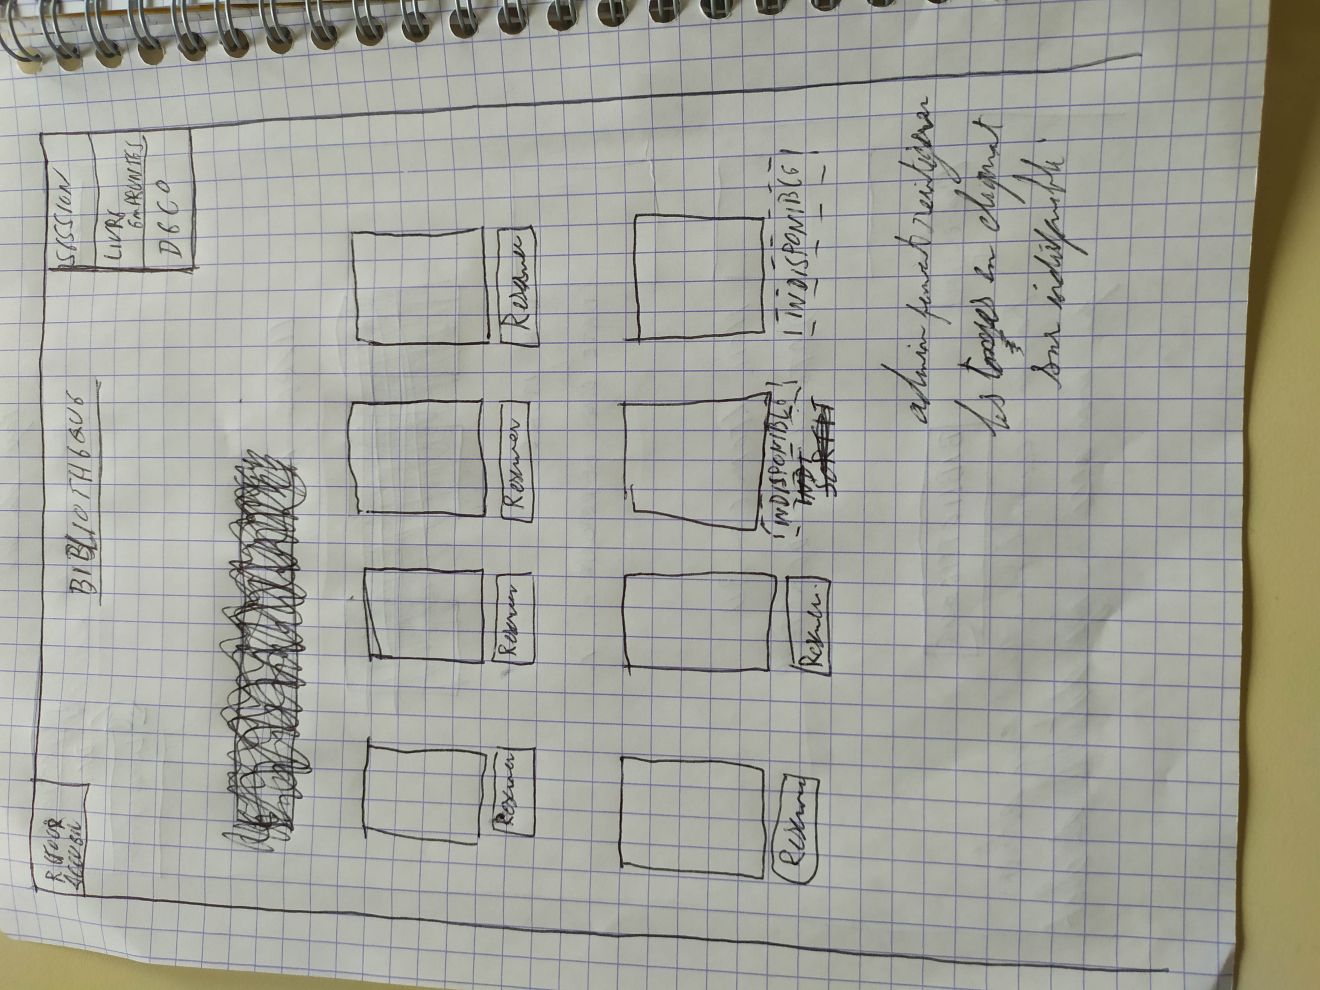 RETOUR
ACCUEIL
BIBLIOTHEQUE
SESSION
LIVRE
EMPRUNTES
DECO
Reserver
Reserver
Reserver
Reserver
Reserver
Reserver
INDISPONIBLE
INDISPONIBLE
INDI
SORTIT
admin peuvent
les en cliquant
sur indisponible